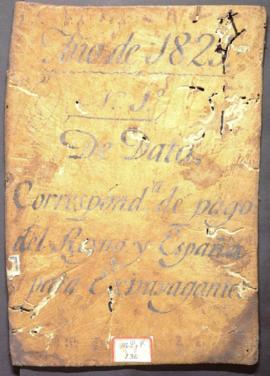 Año de 1823
N.º 1º
De Data.
Correspond.ª de pago
del Reyno y España
para Extravagante